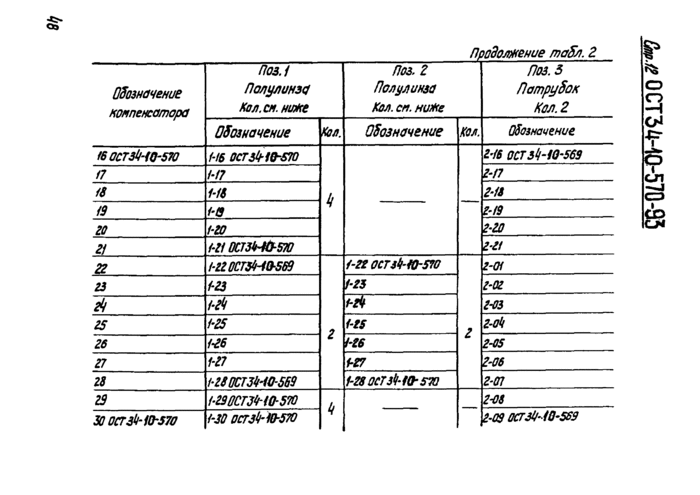 48
Стр. 12 ОСТ 34-10-570-93
Продолжение табл. 2
Обозначение компенсатора
Поз. 1 Полулинза Кол. см. ниже
Поз. 2 Полулинза Кол. см. ниже
Поз. 3 Патрубок Кол. 2
Обозначение Кол. Обозначение Кол. Обозначение
16 ОСТ 34-10-570 1-16 ОСТ 34-10-570 4 — — 2-16 ОСТ 34-10-569
17 1-17 2-17
18 1-18 2-18
19 1-19 2-19
20 1-20 2-20
21 1-21 ОСТ 34-10-570 2-21
22 1-22 ОСТ 34-10-569 2 1-22 ОСТ 34-10-570 2 2-01
23 1-23 1-23 2-02
24 1-24 1-24 2-03
25 1-25 1-25 2-04
26 1-26 1-26 2-05
27 1-27 1-27 2-06
28 1-28 ОСТ 34-10-569 1-28 ОСТ 34-10-570 2-07
29 1-29 ОСТ 34-10-570 4 — — 2-08
30 ОСТ 34-10-570 1-30 ОСТ 34-10-570 2-09 ОСТ 34-10-569